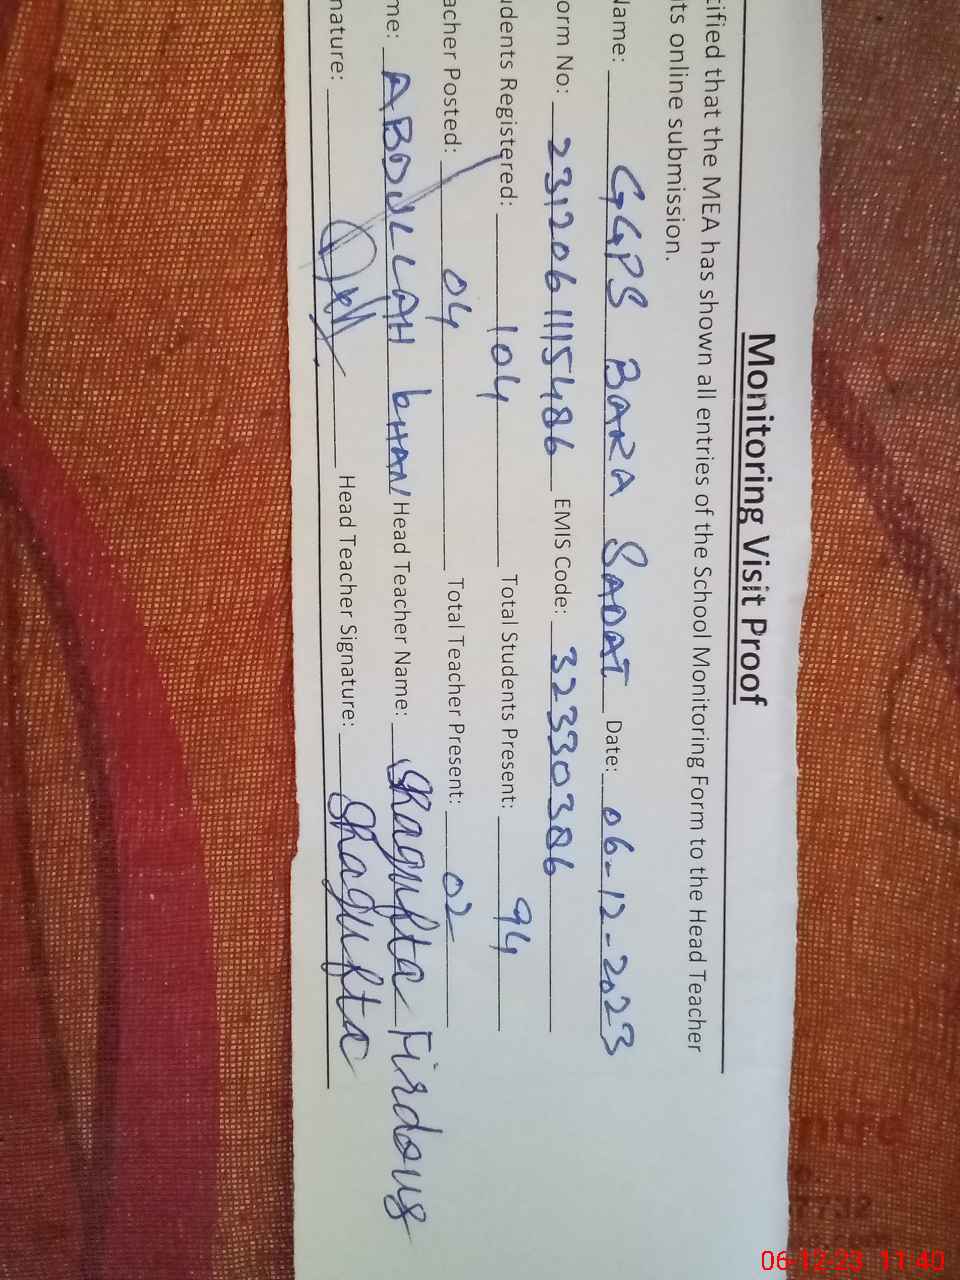 Monitoring Visit Proof
tified that the MEA has shown all entries of the School Monitoring Form to the Head Teacher
its online submission.
Name: GGPS BARA SADAT Date: 06-12-2023
orm No: 2312061115486 EMIS Code: 32330386
udents Registered: 104 Total Students Present: 94
acher Posted: 04 Total Teacher Present: 02
me: ABDULLAH KHAN Head Teacher Name: Shagufta Firdous
nature: Head Teacher Signature: Shagufta
06-12-23 11:40